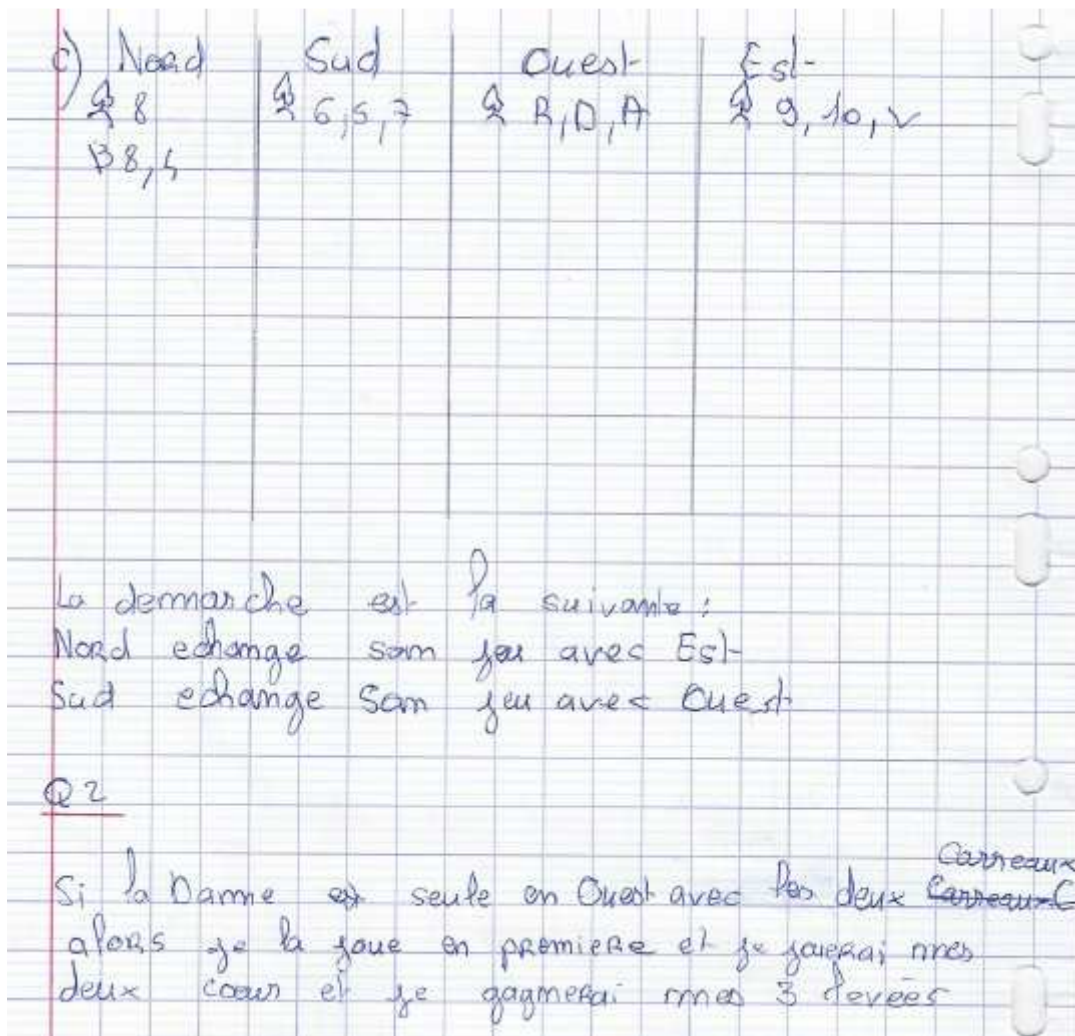 c) Nord Sud Ouest Est
8 6,5,7 R,D,A 9,10,V
B 8,4
La demarche est la suivante :
Nord echange son jeu avec Est
Sud echange son jeu avec Ouest
Q2
Carreaux
Si la Damme est seule en Ouest avec les deux Carreaux
alors je la joue en premiere et je jouerai mes
deux coeur et je gagnerai mes 3 levées